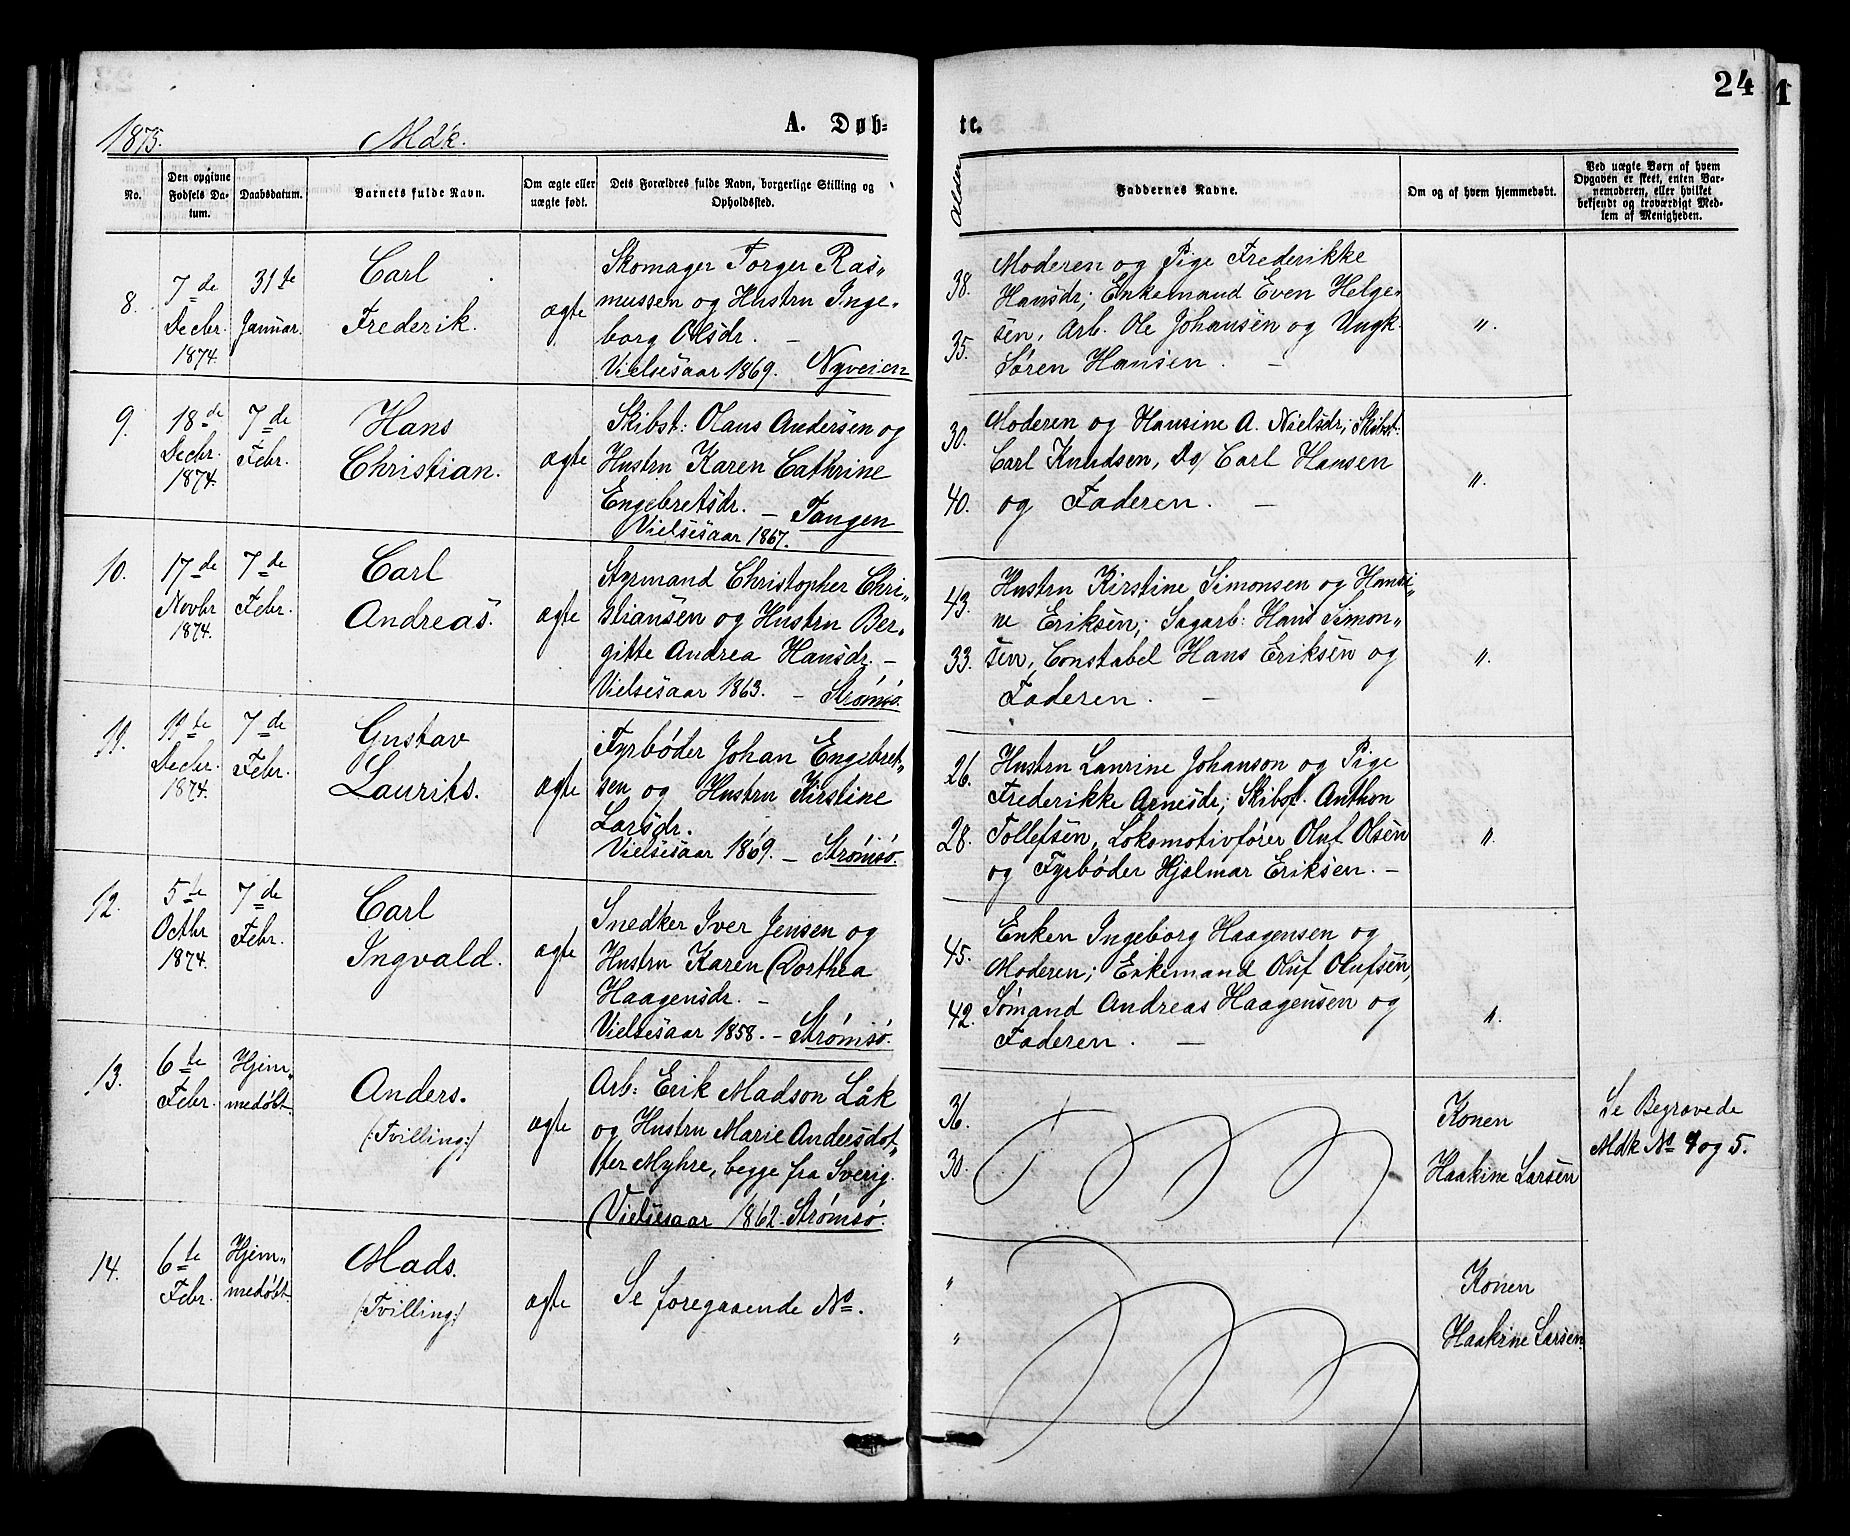 24
1875.
Mdk.
A. Døb-
te.
No.
Den opgivne
Fødsels Da-
tum.
Daabsdatum.
Barnets fulde Navn.
Om ægte eller
uægte født.
Dets Forældres fulde Navn, borgerlige Stilling og
Opholdssted.
Alder
Faddernes Navne.
Om og af hvem hjemmedøbt.
Ved uægte Børn af hvem
Opgaven er skeet, enten Bar-
nemoderen, eller hvilket
bekjendt og troværdigt Med-
lem af Menigheden.
8.
7de
Decbr.
1874.
31te
Januar.
Carl
Frederik.
ægte
Skomager Torger Ras„
mussen og Hustru Inge„
borg Olsdr. –
Vielsesaar 1869. Nyveien
38.
35.
Moderen og Pige Frederikke
Hansdr; Enkemand Even Helge„
sen, Arb. Ole Johansen og Ungk.
Søren Hansen. –
„.
9.
18de
Decbr.
1874.
7de
Febr.
Hans
Christian.
ægte
Skibst: Olaus Andersen og
Hustru Karen Cathrine
Engebretsdr. – Tangen
Vielsesaar 1867.
30.
40.
Moderen og Hansine A. Nielsdr; Skibst:
Carl Knudsen, Do/ Carl Hansen
og Faderen. –
„.
10.
17de
Novbr
1874.
7de
Febr.
Carl
Andreas.
ægte
Styrmand Christopher Chri„
stiansen og Hustru Ber„
gitte Andrea Hansdr. –
Vielsesaar 1863. – Strømsø.
43.
33.
Hustru Kirstine Simonsen og Hansi„
ne Eriksen; Sagarb: Hans Simon„
sen, Constabel Hans Eriksen og
Faderen. –
„.
11.
19te
Decbr.
1874.
7de
Febr.
Gustav
Laurits.
ægte
Fyrbøder Johan Engebret„
sen og Hustru Kirstine
Larsdr.
Vielsesaar 1869. – Strømsø.
26.
28.
Hustru Laurine Johanson og Pige
Frederikke Arnesdr; Skibst. Anthon
Tollefsen, Lokomotivfører Oluf Olsen
og Fyrbøder Hjalmar Eriksen. –
„.
12.
5te
Octbr
1874.
7de
Febr.
Carl
Ingvald.
ægte
Snedker Iver Jensen og
Hustru Karen Dorthea
Haagensdr. –
Vielsesaar 1858. – Strømsø.
45.
42.
Enken Ingeborg Haagensen og
Moderen; Enkemand Oluf Olufsen,
Sømand Andreas Haagensen og
Faderen. –
„.
13.
6te
Febr.
Hjem„
medøbt.
Anders.
(:Tvilling:)
ægte
Arb: Erik Madson Låk
og Hustru Marie Andersdot„
ter Myhre, begge fra Sverig.
Vielsesaar 1862. Strømsø.
36.
30.
Konen
Haakine Larsen
Se Begravede
Mdk No 4 og 5.
14.
6te
Febr.
Hjem„
medøbt.
Mads.
(:Tvilling:)
ægte
Se foregaaende No.
„
„
Konen
Haakine Larsen.